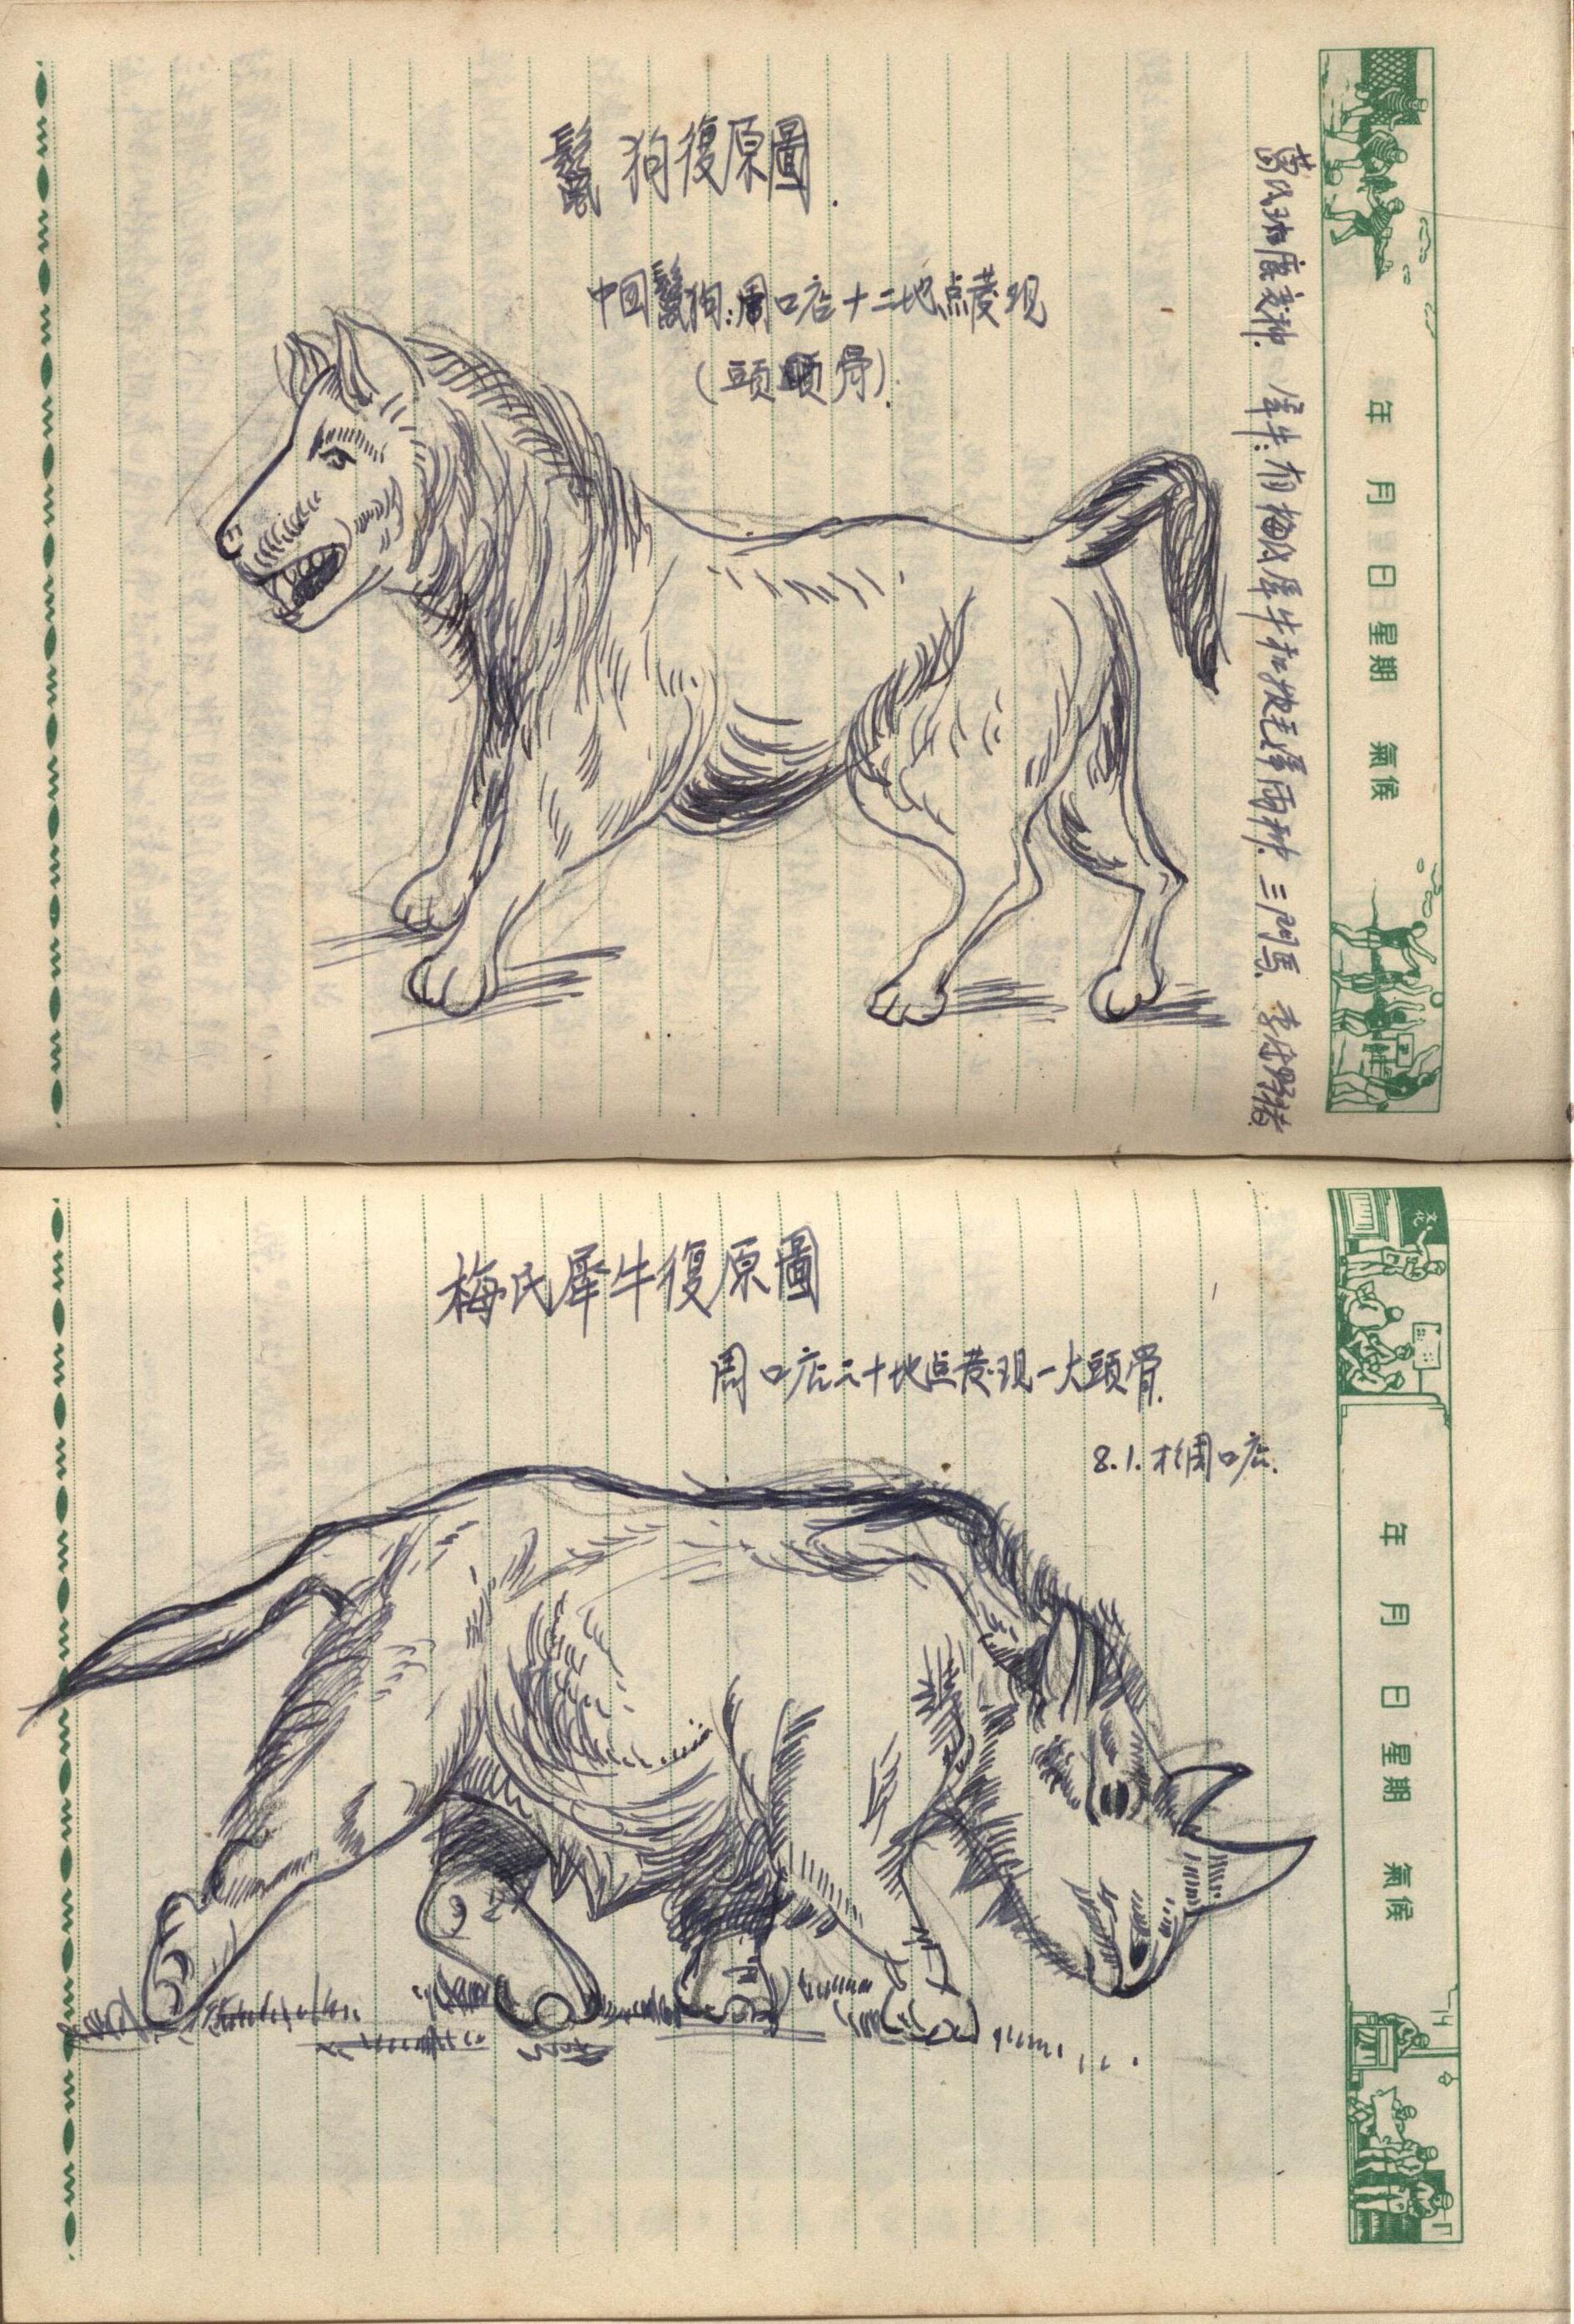 鬣狗復原圖.
中国鬣狗:周口店十二地点发现
(頭頭骨).
葛氏斑鹿变种. 犀牛:有梅氏犀牛和披毛犀兩种. 三門馬. 李氏野猪.
年 月 日 星期 氣候
梅氏犀牛復原圖
周口店二十地点发现一大頭骨.
8.1.于周口店.
年 月 日 星期 氣候